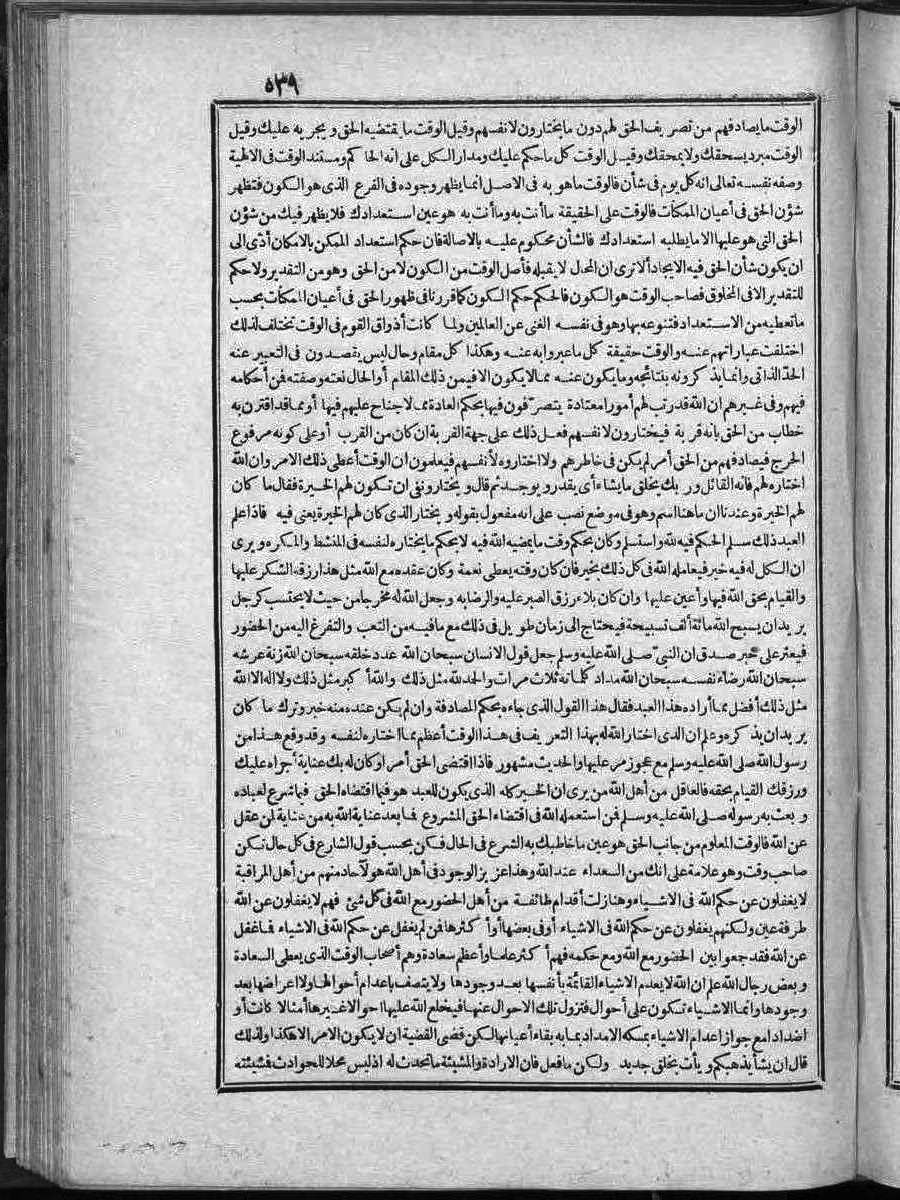 ٥٣٩
الوقت ما يصادفهم من تصريف الحق لهم دون ما يختارون لانفسهم وقيل الوقت ما يقتضيه الحق ويجريه عليك وقيل
الوقت مبرد يسحقك ولا يمحقك وقيل الوقت كل ما حكم عليك ومدار الكل على انه الحاكم ومستند الوقت فى الالهية
وصفه نفسه تعالى انه كل يوم فى شأن فالوقت ما هو به فى الاصل انما يظهر وجوده فى الفرع الذى هو الكون فتظهر
شؤن الحق فى أعيان الممكنات فالوقت على الحقيقة ما أنت به وما أنت به هو عين استعدادك فلا يظهر فيك من شؤن
الحق التى هو عليها الا ما يطلبه استعدادك فالشأن محكوم عليه بالاصالة فان حكم استعداد الممكن بالامكان أدّى الى
ان يكون شأن الحق فيه الايجاد ألا ترى ان المحال لا يقبله فأصل الوقت من الكون لا من الحق وهو من التقدير ولا حكم
للتقدير الا فى المخلوق فصاحب الوقت هو الكون فالحكم حكم الكون كما قررنا فى ظهور الحق فى أعيان الممكنات بحسب
ما تعطيه من الاستعداد فتنوعه بها وهو فى نفسه الغنى عن العالمين ولما كانت أذواق القوم فى الوقت تختلف لذلك
اختلفت عباراتهم عنه والوقت حقيقة كل ما عبروا به عنه وهكذا كل مقام وحال ليس يقصدون فى التعبير عنه
الحدّ الذاتى وانما يذكرونه بنتائجه وما يكون عنه مما لا يكون الا فيمن ذلك المقام أو الحال نعته وصفته فمن أحكامه
فيهم وفى غيرهم ان الله قد رتب لهم أمورا معتادة يتصرّفون فيها بحكم العادة مما لا جناح عليهم فيها أو مما قد اقترن به
خطاب من الحق بانه قربة فيختارون لانفسهم فعل ذلك على جهة القربة ان كان من القرب أو على كونه مرفوع
الحرج فيصادفهم من الحق أمر لم يكن فى خاطرهم ولا اختاروه لأنفسهم فيعلمون ان الوقت أعطى ذلك الامر وان الله
اختاره لهم فانه القائل وربك يخلق ما يشاء أى يقدر ويوجد ثم قال ويختار ونفى ان تكون لهم الخيرة فقال ما كان
لهم الخيرة وعندنا ان ما هنا اسم وهو فى موضع نصب على انه مفعول بقوله ويختار الذى كان لهم الخيرة يعنى فيه فاذا علم
العبد ذلك سلم الحكم فيه لله واستسلم وكان بحكم وقت ما يمضيه الله فيه لا بحكم ما يختاره لنفسه فى المنشط والمكره ويرى
ان الكل له فيه خير فيعامله الله فى كل ذلك بخير فان كان وقته يعطى نعمة وكان عقده مع الله مثل هذا رزقه الشكر عليها
والقيام بحق الله فيها وأعين عليها وان كان بلاء رزق الصبر عليه والرضا به وجعل الله له مخرجا من حيث لا يحتسب كرجل
يريد ان يسبح الله مائة ألف تسبيحة فيحتاج الى زمان طويل فى ذلك مع ما فيه من التعب والتفرغ اليه من الحضور
فيعثر على خبر صدق ان النبىّ صلى الله عليه وسلم جعل قول الانسان سبحان الله عدد خلقه سبحان الله زنة عرشه
سبحان الله رضاء نفسه سبحان الله مداد كلماته ثلاث مرات والحمد لله مثل ذلك والله أكبر مثل ذلك ولا اله الا الله
مثل ذلك أفضل مما أراده هذا العبد فقال هذا القول الذى جاءه بحكم المصادفة وان لم يكن عنده منه خبر وترك ما كان
يريد ان يذكره وعلم ان الذى اختار الله له بهذا التعريف فى هذا الوقت أعظم مما اختاره لنفسه وقد وقع هذا من
رسول الله صلى الله عليه وسلم مع عجوز مر عليها والحديث مشهور فاذا اقتضى الحق أمرا وكان له بك عناية أجراه عليك
ورزقك القيام بحقه فالعاقل من أهل الله من يرى ان الخير كله الذى يكون للعبد هو فيما اقتضاه الحق فيما شرع لعباده
وبعث به رسوله صلى الله عليه وسلم فمن استعمله الله فى اقتضاء الحق المشروع فما بعد عناية الله به من عناية لمن عقل
عن الله فالوقت المعلوم من جانب الحق هو عين ما خاطبك به الشرع فى الحال فكن بحسب قول الشارع فى كل حال تكن
صاحب وقت وهو علامة على انك من السعداء عند الله وهذا عزيز الوجود فى أهل الله هو لآحاد منهم من أهل المراقبة
لا يغفلون عن حكم الله فى الاشياء وهنا زلت أقدام طائفة من أهل الحضور مع الله فى كل شئ فهم لا يغفلون عن الله
طرفة عين ولكنهم يغفلون عن حكم الله فى الاشياء أو فى بعضها أو أكثرها فمن لم يغفل عن حكم الله فى الاشياء فما غفل
عن الله فقد جمعوا بين الحضور مع الله ومع حكمه فهم أكثر علما وأعظم سعادة وهم أصحاب الوقت الذى يعطى السعادة
وبعض رجال الله علم ان الله لا يعدم الاشياء القائمة بأنفسها بعد وجودها ولا يتصف باعدام أحوالها ولا اعراضها بعد
وجودها وانما الاشياء تكون على أحوال فتزول تلك الاحوال عنها فيخلع الله عليها احوالا غيرها أمثالا كانت أو
اضدادا مع جواز اعدام الاشياء بمسكه الامداد بما به بقاء أعيانها لكن قضى القضية ان لا يكون الامر الا هكذا ولذلك
قال ان يشأ يذهبكم ويأت بخلق جديد ولكن ما فعل فان الارادة والمشيئة ما تحدث له اذ ليس محلا للحوادث فمشيئته